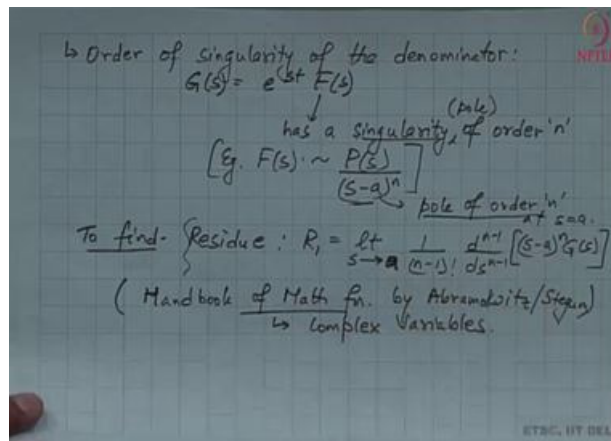 ↳ Order of singularity of the denominator:
NPTEL
G(s) = e^{st} F(s)
(pole)
has a singularity, of order 'n'
[Eg. F(s) ~ P(s)/(s-a)^n]
pole of order 'n'
at s=a.
To find- Residue : R₁ = lt s→a 1/(n-1)! d^{n-1}/ds^{n-1} [(s-a)^n G(s)]
(Handbook of Math fn. by Abramowitz/Stegun)
↳ Complex Variables.
ETSC, IIT DEL